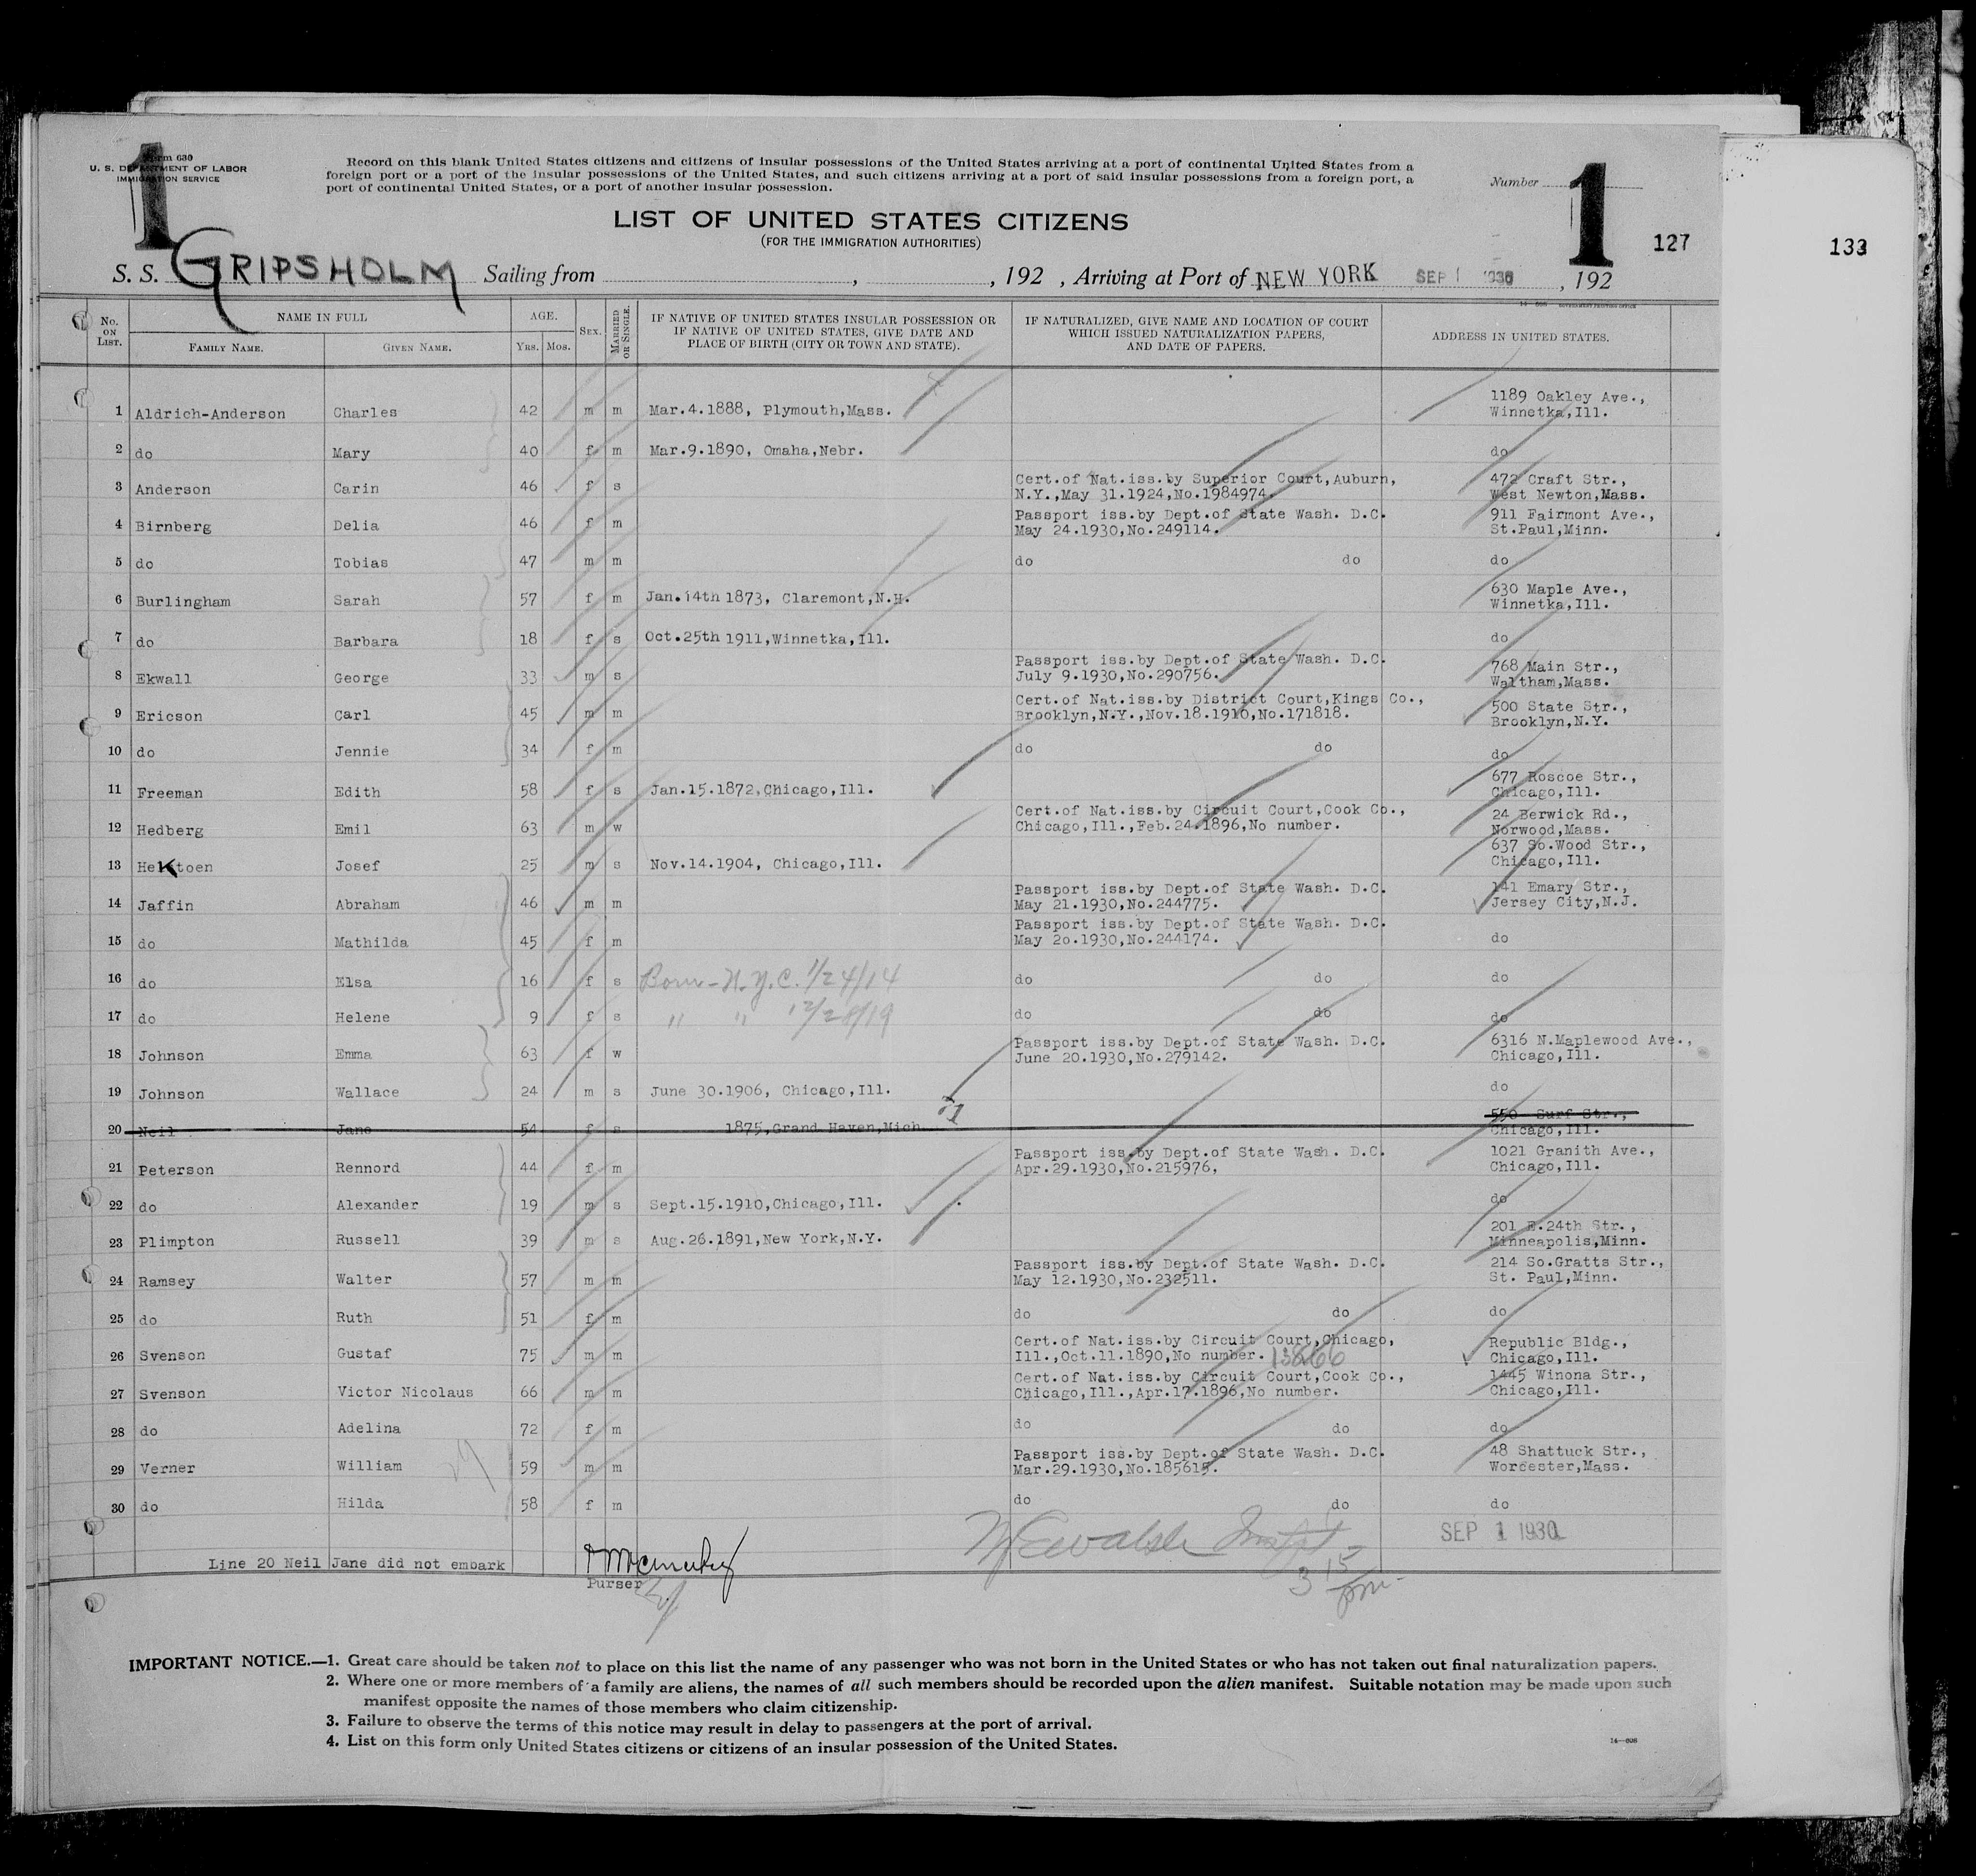 Form 630
U. S. DEPARTMENT OF LABOR
IMMIGRATION SERVICE
1
Record on this blank United States citizens and citizens of insular possessions of the United States arriving at a port of continental United States from a
foreign port or a port of the insular possessions of the United States, and such citizens arriving at a port of said insular possessions from a foreign port, a
port of continental United States, or a port of another insular possession.
Number 1
127
133
LIST OF UNITED STATES CITIZENS
(FOR THE IMMIGRATION AUTHORITIES)
S. S. GRIPSHOLM Sailing from , , 192 , Arriving at Port of NEW YORK SEP 1 1930 , 192
No. ON LIST.
NAME IN FULL
FAMILY NAME. GIVEN NAME.
AGE.
YRS. MOS.
SEX.
MARRIED OR SINGLE.
IF NATIVE OF UNITED STATES INSULAR POSSESSION OR
IF NATIVE OF UNITED STATES, GIVE DATE AND
PLACE OF BIRTH (CITY OR TOWN AND STATE).
IF NATURALIZED, GIVE NAME AND LOCATION OF COURT
WHICH ISSUED NATURALIZATION PAPERS,
AND DATE OF PAPERS.
ADDRESS IN UNITED STATES.
1 Aldrich-Anderson Charles 42 m m Mar.4.1888, Plymouth,Mass. 1189 Oakley Ave.,
Winnetka,Ill.
2 do Mary 40 f m Mar.9.1890, Omaha,Nebr. do
3 Anderson Carin 46 f s Cert.of Nat.iss.by Superior Court,Auburn, 472 Craft Str.,
N.Y.,May 31.1924,No.1984974. West Newton,Mass.
4 Birnberg Delia 46 f m Passport iss.by Dept.of State Wash. D.C. 911 Fairmont Ave.,
May 24.1930,No.249114. St.Paul,Minn.
5 do Tobias 47 m m do do do
6 Burlingham Sarah 57 f m Jan.14th 1873, Claremont,N.H. 630 Maple Ave.,
Winnetka,Ill.
7 do Barbara 18 f s Oct.25th 1911,Winnetka,Ill. do
8 Ekwall George 33 m s Passport iss.by Dept.of State Wash. D.C. 768 Main Str.,
July 9.1930,No.290756. Waltham,Mass.
9 Ericson Carl 45 m m Cert.of Nat.iss.by District Court,Kings Co., 500 State Str.,
Brooklyn,N.Y.,Nov.18.1910,No.171818. Brooklyn,N.Y.
10 do Jennie 34 f m do do do
11 Freeman Edith 58 f s Jan.15.1872,Chicago,Ill. 677 Roscoe Str.,
Chicago,Ill.
12 Hedberg Emil 63 m w Cert.of Nat.iss.by Circuit Court,Cook Co., 24 Berwick Rd.,
Chicago,Ill.,Feb.24.1896,No number. Norwood,Mass.
13 Hektoen Josef 25 m s Nov.14.1904, Chicago,Ill. 637 So.Wood Str.,
Chicago,Ill.
14 Jaffin Abraham 46 m m Passport iss.by Dept.of State Wash. D.C. 141 Emary Str.,
May 21.1930,No.244775. Jersey City,N.J.
15 do Mathilda 45 f m Passport iss.by Dept.of State Wash. D.C. do
May 20.1930,No.244174.
16 do Elsa 16 f s Born - N.Y.C. 1/24/14 do do do
17 do Helene 9 f s " " 12/28/19 do do do
18 Johnson Emma 63 f w Passport iss.by Dept.of State Wash. D.C. 6316 N.Maplewood Ave.,
June 20.1930,No.279142. Chicago,Ill.
19 Johnson Wallace 24 m s June 30.1906, Chicago,Ill. do
20 Neil Jane 54 f s 1875,Grand Haven,Mich. 550 Surf Str.,
Chicago,Ill.
21 Peterson Rennord 44 f m Passport iss.by Dept.of State Wash. D.C. 1021 Granith Ave.,
Apr.29.1930,No.215976, Chicago,Ill.
22 do Alexander 19 m s Sept.15.1910,Chicago,Ill. do
23 Plimpton Russell 39 m s Aug.26.1891,New York,N.Y. 201 E.24th Str.,
Minneapolis,Minn.
24 Ramsey Walter 57 m m Passport iss.by Dept.of State Wash. D.C. 214 So.Gratts Str.,
May 12.1930,No.232511. St. Paul,Minn.
25 do Ruth 51 f m do do do
26 Svenson Gustaf 75 m m Cert.of Nat.iss.by Circuit Court,Chicago, Republic Bldg.,
Ill.,Oct.11.1890,No number. 13866 Chicago,Ill.
27 Svenson Victor Nicolaus 66 m m Cert.of Nat.iss.by Circuit Court,Cook Co., 1445 Winona Str.,
Chicago,Ill.,Apr.17.1896,No number. Chicago,Ill.
28 do Adelina 72 f m do do do
29 Verner William 59 m m Passport iss.by Dept.of State Wash. D.C. 48 Shattuck Str.,
Mar.29.1930,No.185615. Worcester,Mass.
30 do Hilda 58 f m do do do
SEP 1 1930
Line 20 Neil Jane did not embark
Purser
3 15 pm
IMPORTANT NOTICE.—1. Great care should be taken not to place on this list the name of any passenger who was not born in the United States or who has not taken out final naturalization papers.
2. Where one or more members of a family are aliens, the names of all such members should be recorded upon the alien manifest. Suitable notation may be made upon such
manifest opposite the names of those members who claim citizenship.
3. Failure to observe the terms of this notice may result in delay to passengers at the port of arrival.
4. List on this form only United States citizens or citizens of an insular possession of the United States.
14—608